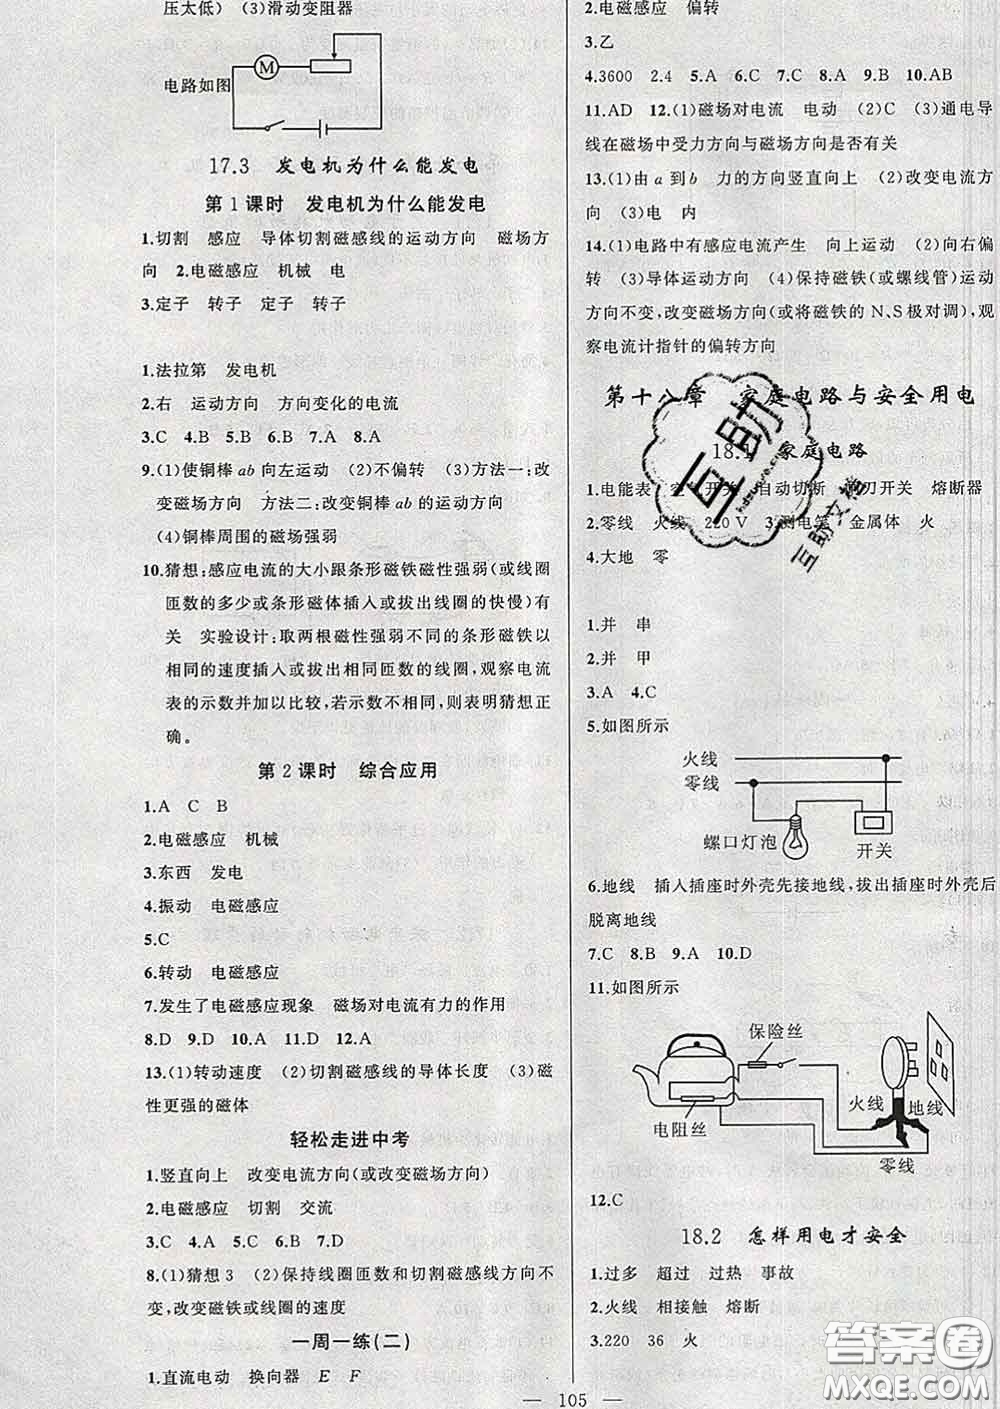 压太低) (3)滑动变阻器
电路如图
M
17.3 发电机为什么能发电
第1课时 发电机为什么能发电
1.切割 感应 导体切割磁感线的运动方向 磁场方
向 2.电磁感应 机械 电
3.定子 转子 定子 转子
1.法拉第 发电机
2.右 运动方向 方向变化的电流
3.C 4.B 5.B 6.B 7.B 8.A
9.(1)使铜棒ab向左运动 (2)不偏转 (3)方法一:改
变磁场方向 方法二:改变铜棒ab的运动方向
(4)铜棒周围的磁场强弱
10.猜想:感应电流的大小跟条形磁铁磁性强弱(或线圈
匝数的多少或条形磁体插入或拔出线圈的快慢)有
关 实验设计:取两根磁性强弱不同的条形磁铁以
相同的速度插入或拔出相同匝数的线圈,观察电流
表的示数并加以比较,若示数不相同,则表明猜想正
确。
第2课时 综合应用
1.A C B
2.电磁感应 机械
3.东西 发电
4.振动 电磁感应
5.C
6.转动 电磁感应
7.发生了电磁感应现象 磁场对电流有力的作用
8.D 9.D 10.A 11.D 12.A
13.(1)转动速度 (2)切割磁感线的导体长度 (3)磁
性更强的磁体
轻松走进中考
1.竖直向上 改变电流方向(或改变磁场方向)
2.电磁感应 切割 交流
3.C 4.A 5.C 6.B 7.D
8.(1)猜想3 (2)保持线圈匝数和切割磁感线方向不
变,改变磁铁或线圈的速度
一周一练(二)
1.直流电动 换向器 E F
2.电磁感应 偏转
3.乙
4.3600 2.4 5.A 6.C 7.C 8.A 9.B 10.AB
11.AD 12.(1)磁场对电流 电动 (2)C (3)通电导
线在磁场中受力方向与磁场方向是否有关
13.(1)由a到b 力的方向竖直向上 (2)改变电流方
向 (3)电 内
14.(1)电路中有感应电流产生 向上运动 (2)向右偏
转 (3)导体运动方向 (4)保持磁铁(或螺线管)运动
方向不变,改变磁场方向(或将磁铁的N、S极对调),观
察电流计指针的偏转方向
第十八章 家庭电路与安全用电
18.1 家庭电路
1.电能表 空气开关 自动切断 闸刀开关 熔断器
2.零线 火线 220 V 3.测电笔 金属体 火
4.大地 零
1.并 串
2.并 甲
3.A 4.C
5.如图所示
火线
零线
螺口灯泡 开关
6.地线 插入插座时外壳先接地线,拔出插座时外壳后
脱离地线
7.C 8.B 9.A 10.D
11.如图所示
保险丝
电阻丝
火线 地线
零线
12.C
18.2 怎样用电才安全
1.过多 超过 过热 事故
2.火线 相接触 熔断
3.220 36 火
互助
互助文档
答案圈
MXQE.COM
— 105 —